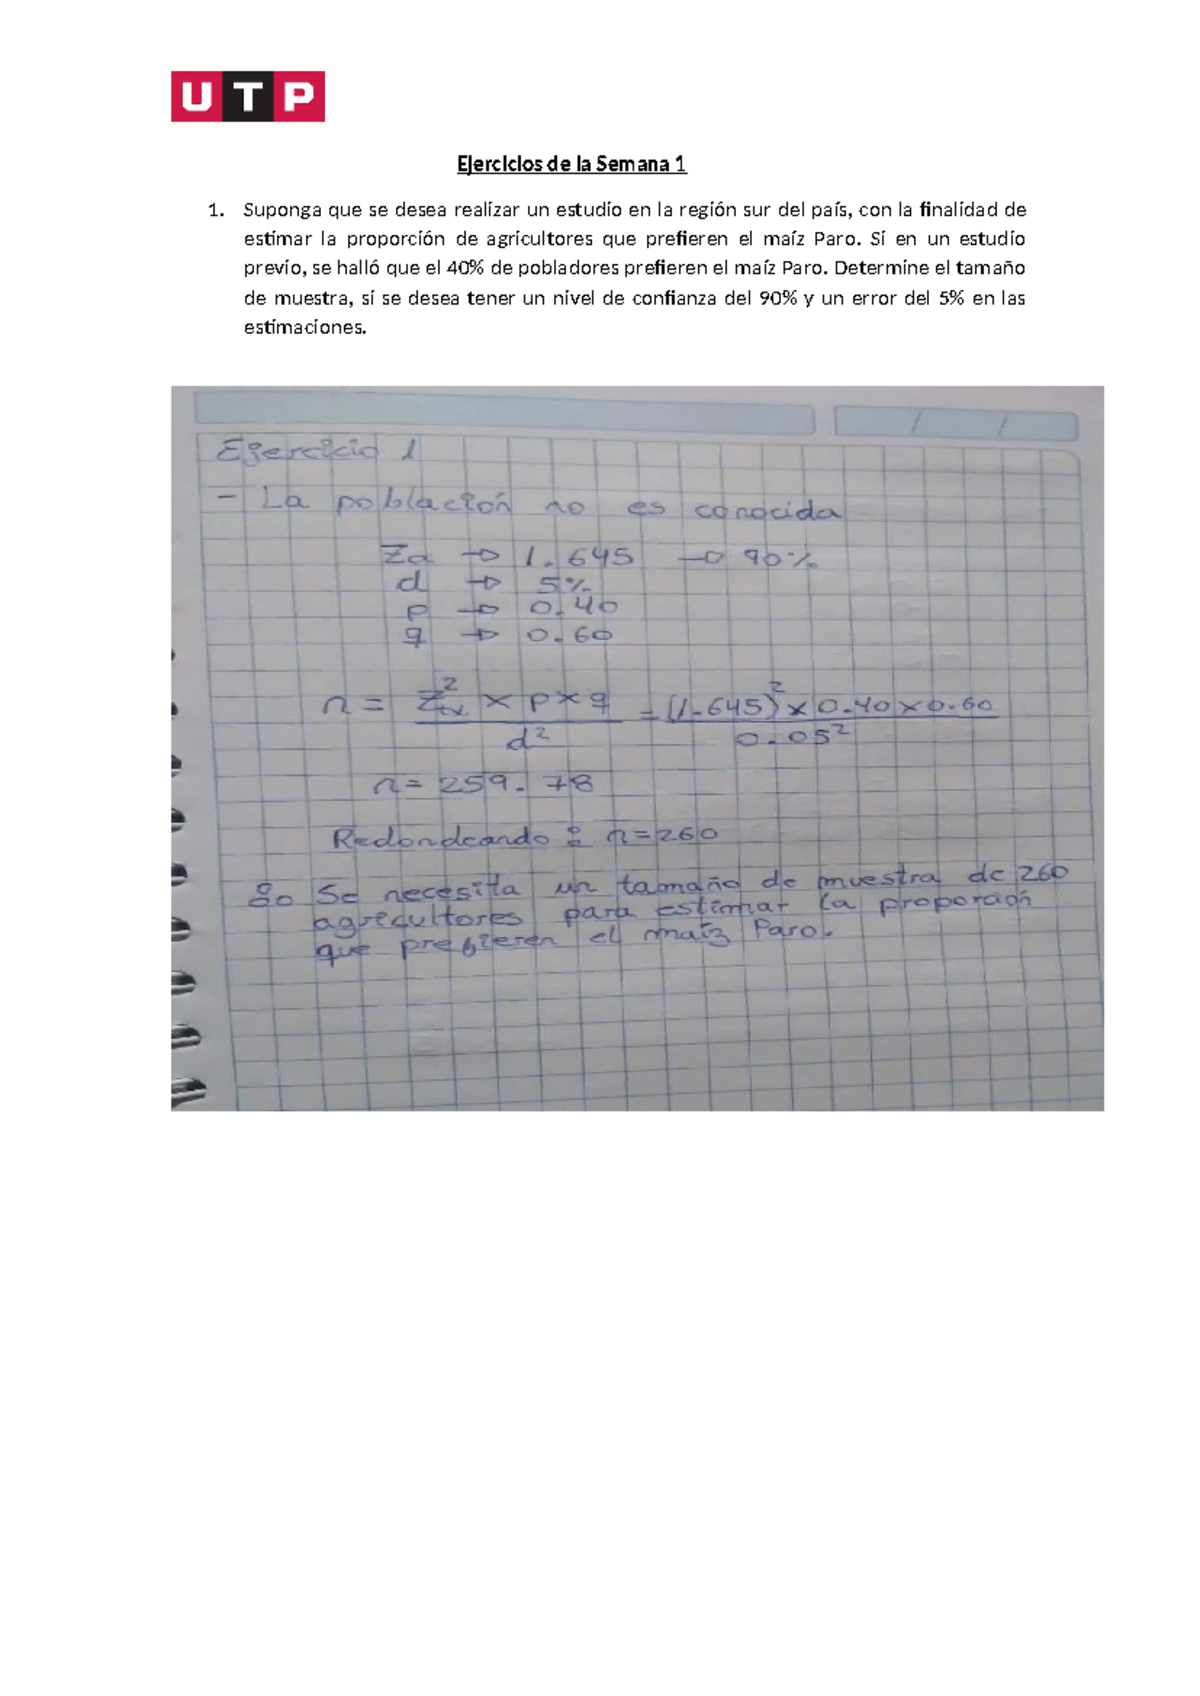 UTP
Ejercicios de la Semana 1
1. Suponga que se desea realizar un estudio en la región sur del país, con la finalidad de
estimar la proporción de agricultores que prefieren el maíz Paro. Si en un estudio
previo, se halló que el 40% de pobladores prefieren el maíz Paro. Determine el tamaño
de muestra, si se desea tener un nivel de confianza del 90% y un error del 5% en las
estimaciones.
Ejercicio 1
- La población no es conocida
Zα → 1.645 → 90%
d → 5%
p → 0.40
q → 0.60
n = Zα² × p × q / d² = (1.645)² × 0.40 × 0.60 / 0.05²
n = 259.78
Redondeando : n = 260
∴ Se necesita un tamaño de muestra de 260
agricultores para estimar la proporción
que prefieren el maíz Paro.